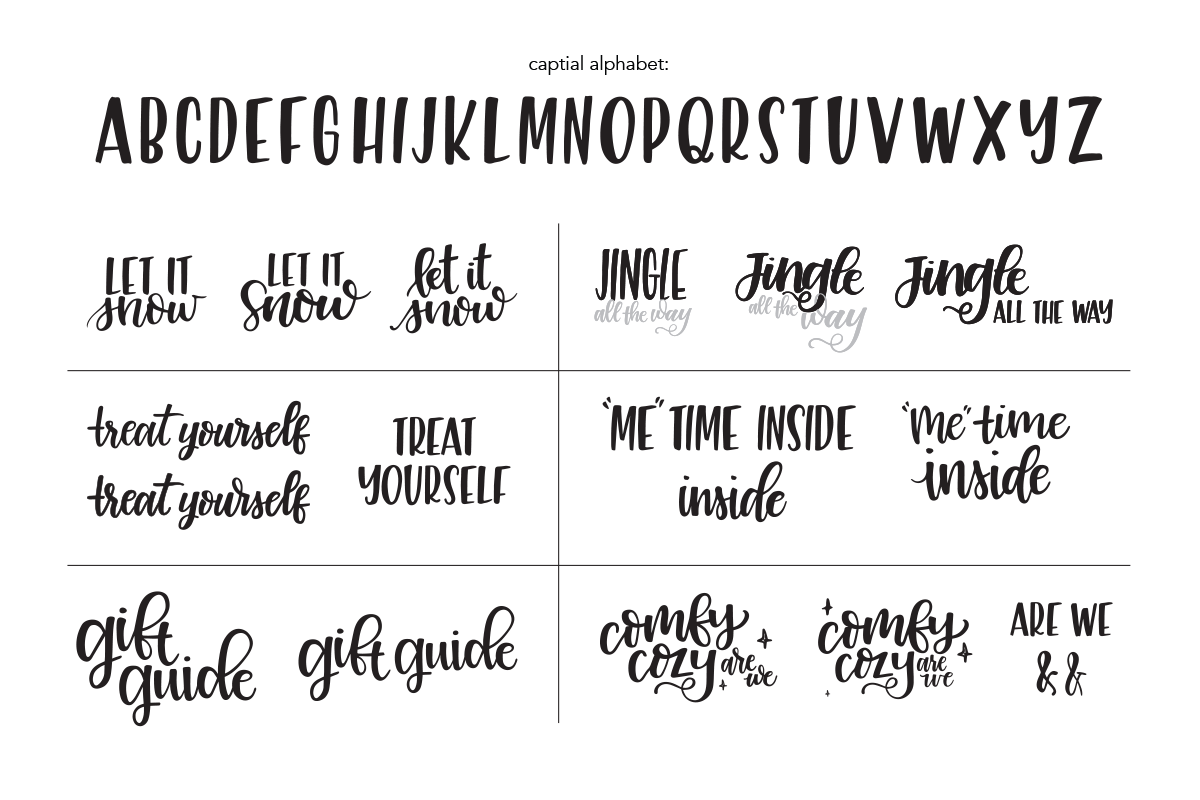 captial alphabet:
ABCDEFGHIJKLMNOPQRSTUVWXYZ
LET IT
snow
LET IT
Snow
let it
snow
JINGLE
all the way
Jingle
all the way
Jingle
ALL THE WAY
treat yourself
treat yourself
TREAT
YOURSELF
"ME" TIME INSIDE
inside
"me" time
inside
gift
guide
gift guide
comfy
cozy are
we
comfy
cozy are
we
ARE WE
& &